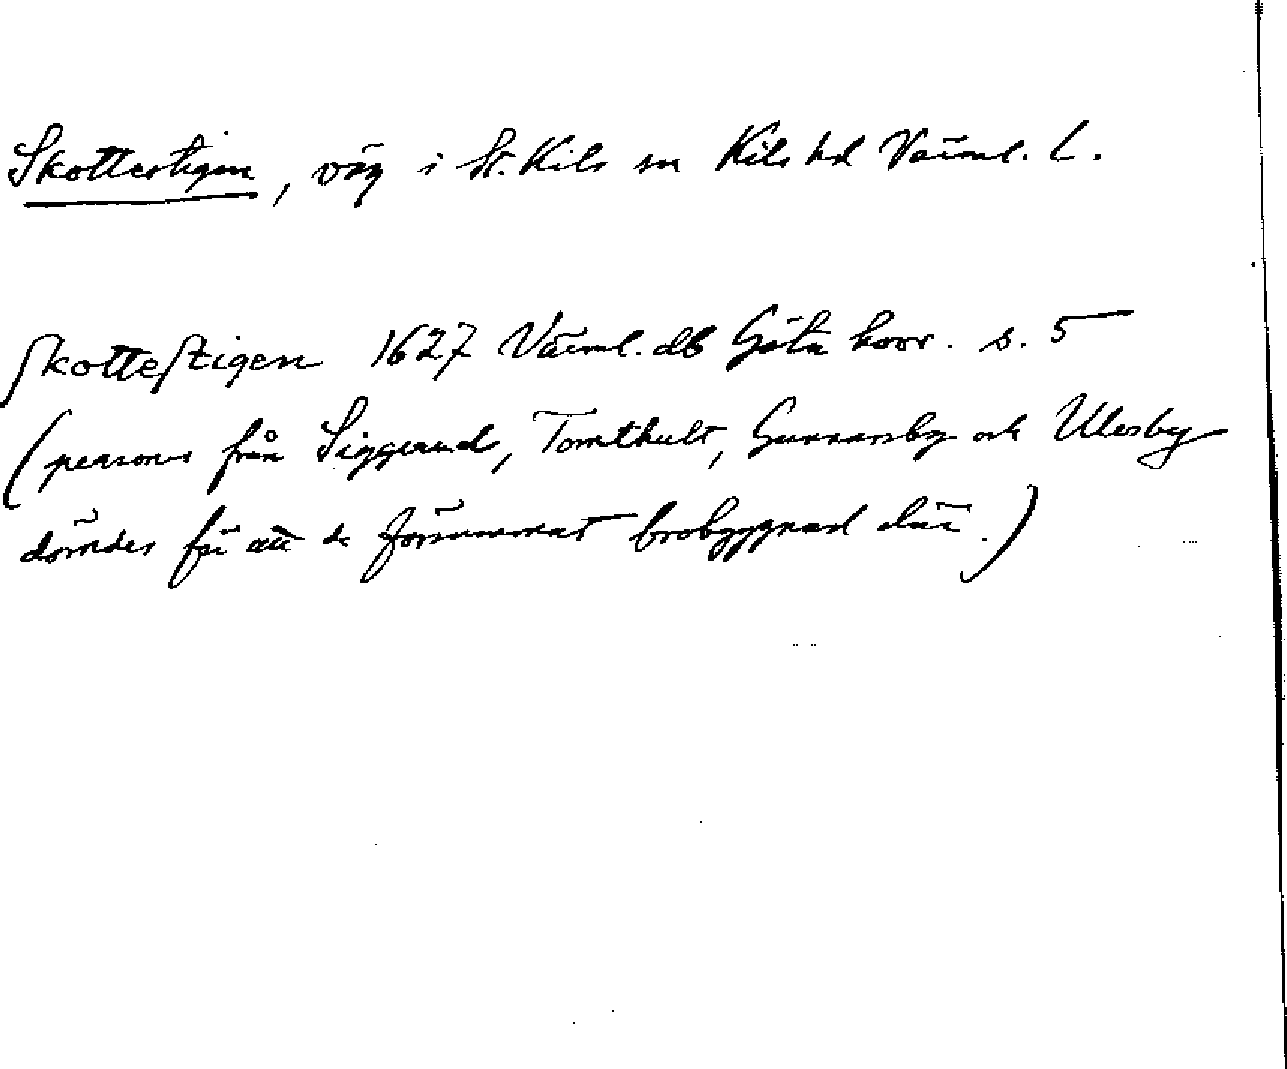 Skottestigen, väg i St. Kils sn Kils hd Värml. L.
Skottestigen 1627 Värml. db Göta hovr. s. 5
(personer från Siggerud, Tomthult, Gunnarsby och Ulvsby
dömdes för att de försummat brobyggnad där.)